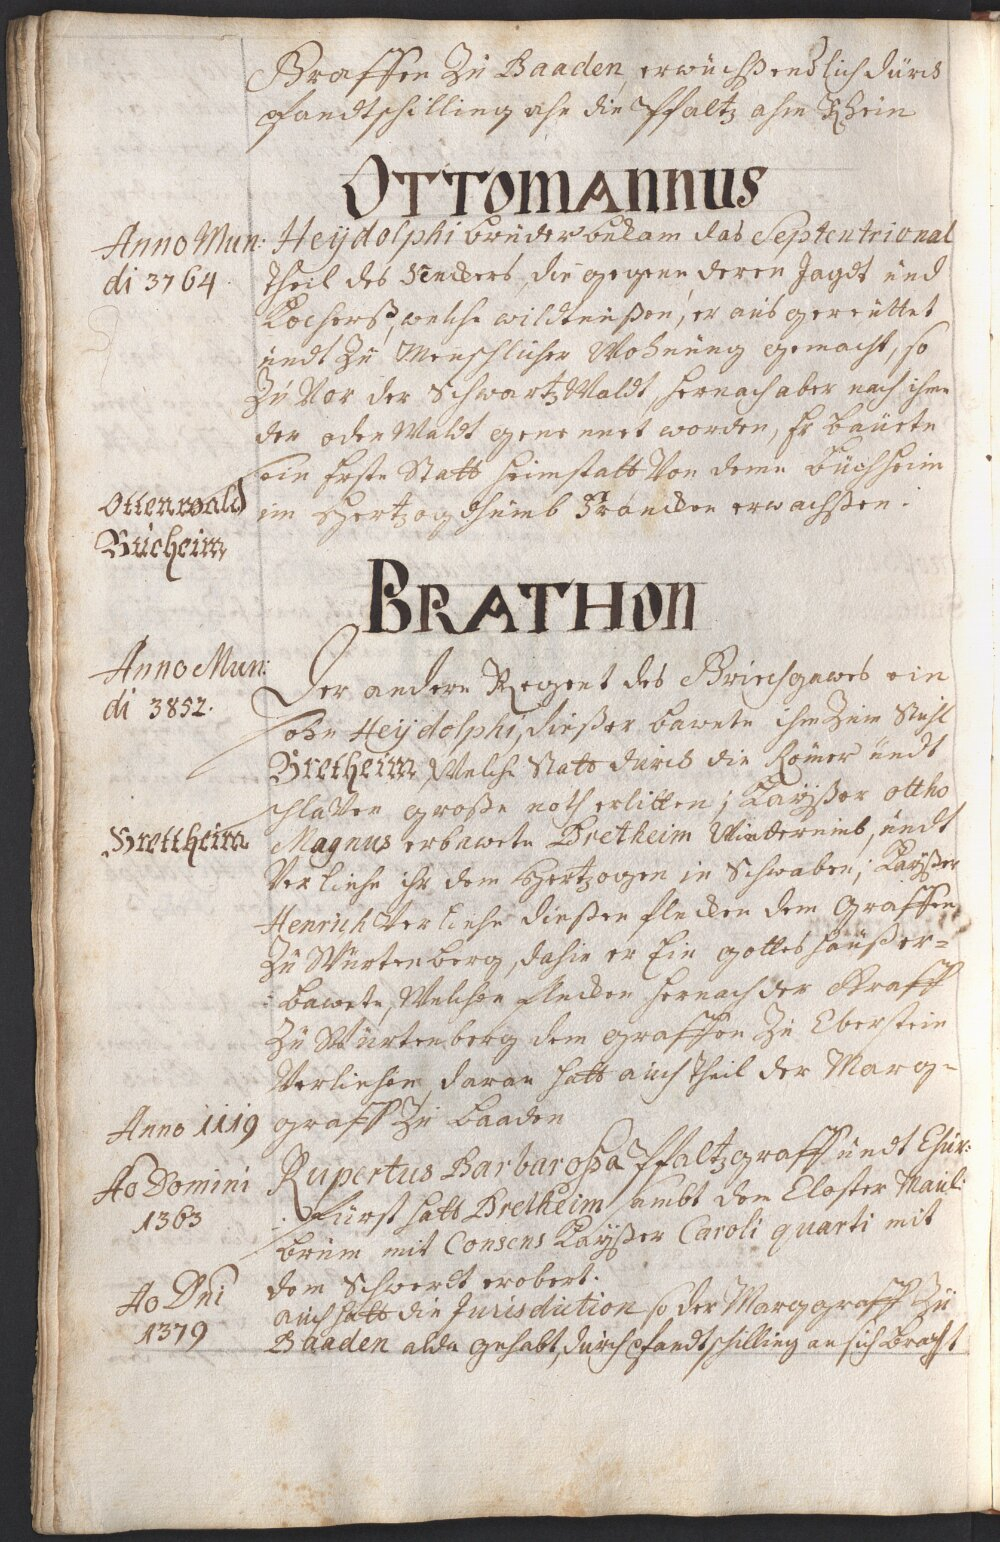 Graffen Zu Baaden, erwüchß endlich dürch
pfandtschilling ahn die Pfaltz ahm Rhein
OTTOMANNUS
Anno Mun:
di 3764.
Heydolphi brüder bekam das Septentrional
Theil des Neckers, die gegenn deren Jagst und
Kocherß, welche wildtnüßen, er aus gereüttet
undt Zu Menschlicher Wohnüng gemacht, so
Zu Vor der Schwartz Waldt, hernach aber nach ihme
der oden Waldt genennet worden, Er baüete
ein Erste Statt Heimstatt Von deme Büchheim
im Hertzogthumb Francken erwachßen.
Ottenwald
Bücheim
BRATHON
Anno Mun:
di 3852.
Der andere Regent des Brüchgawes ein
sohn Heydolphi, dießer bawete ihm Zum Stuhl
Bretheim, Welche Statt dürch die Römer undt
schlaven große noth erlitten; Kayßer ottho
Magnus erbawete Bretheim Wiederumb, undt
Verliehe ihr dem Hertzogen in Schwaben; Kayßer
Henrich Verliehe dießen flecken dem Graffen
Zu Würtenberg, dahin er Ein gotteshauß er=
bawete, Welchen flecken hernach der Graff
Zu Würtenberg dem graffen Zu Eberstein
Verliehen, daran hatt auch Theil der Marg=
graff Zu Baaden
Brettheim
Anno 1119
Ao Domini
1363
Rupertus Barbaroßa Pfaltzgraff undt Chur:
Fürst hatt Bretheim sambt dem Closter Maul:
brunn mit Consens Kayßer Caroli quarti mit
dem Schwerdt erobert.
Ao Dni
1379
auch hatt die Jurisdiction so der Marggraff Zu
Baaden alda gehabt, durch pfandtschilling an sich bracht